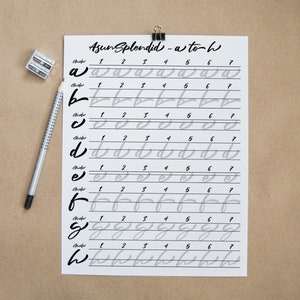 AsunSplendid - a to h
Order 1 2 3 4 5 6 7
a a a a a a a a
Order 1 2 3 4 5 6 7
b b b b b b b b
Order 1 2 3 4 5 6 7
c c c c c c c c
Order 1 2 3 4 5 6 7
d d d d d d d d
Order 1 2 3 4 5 6 7
e e e e e e e e
Order 1 2 3 4 5 6 7
f f f f f f f f
Order 1 2 3 4 5 6 7
g g g g g g g g
Order 1 2 3 4 5 6 7
h h h h h h h h